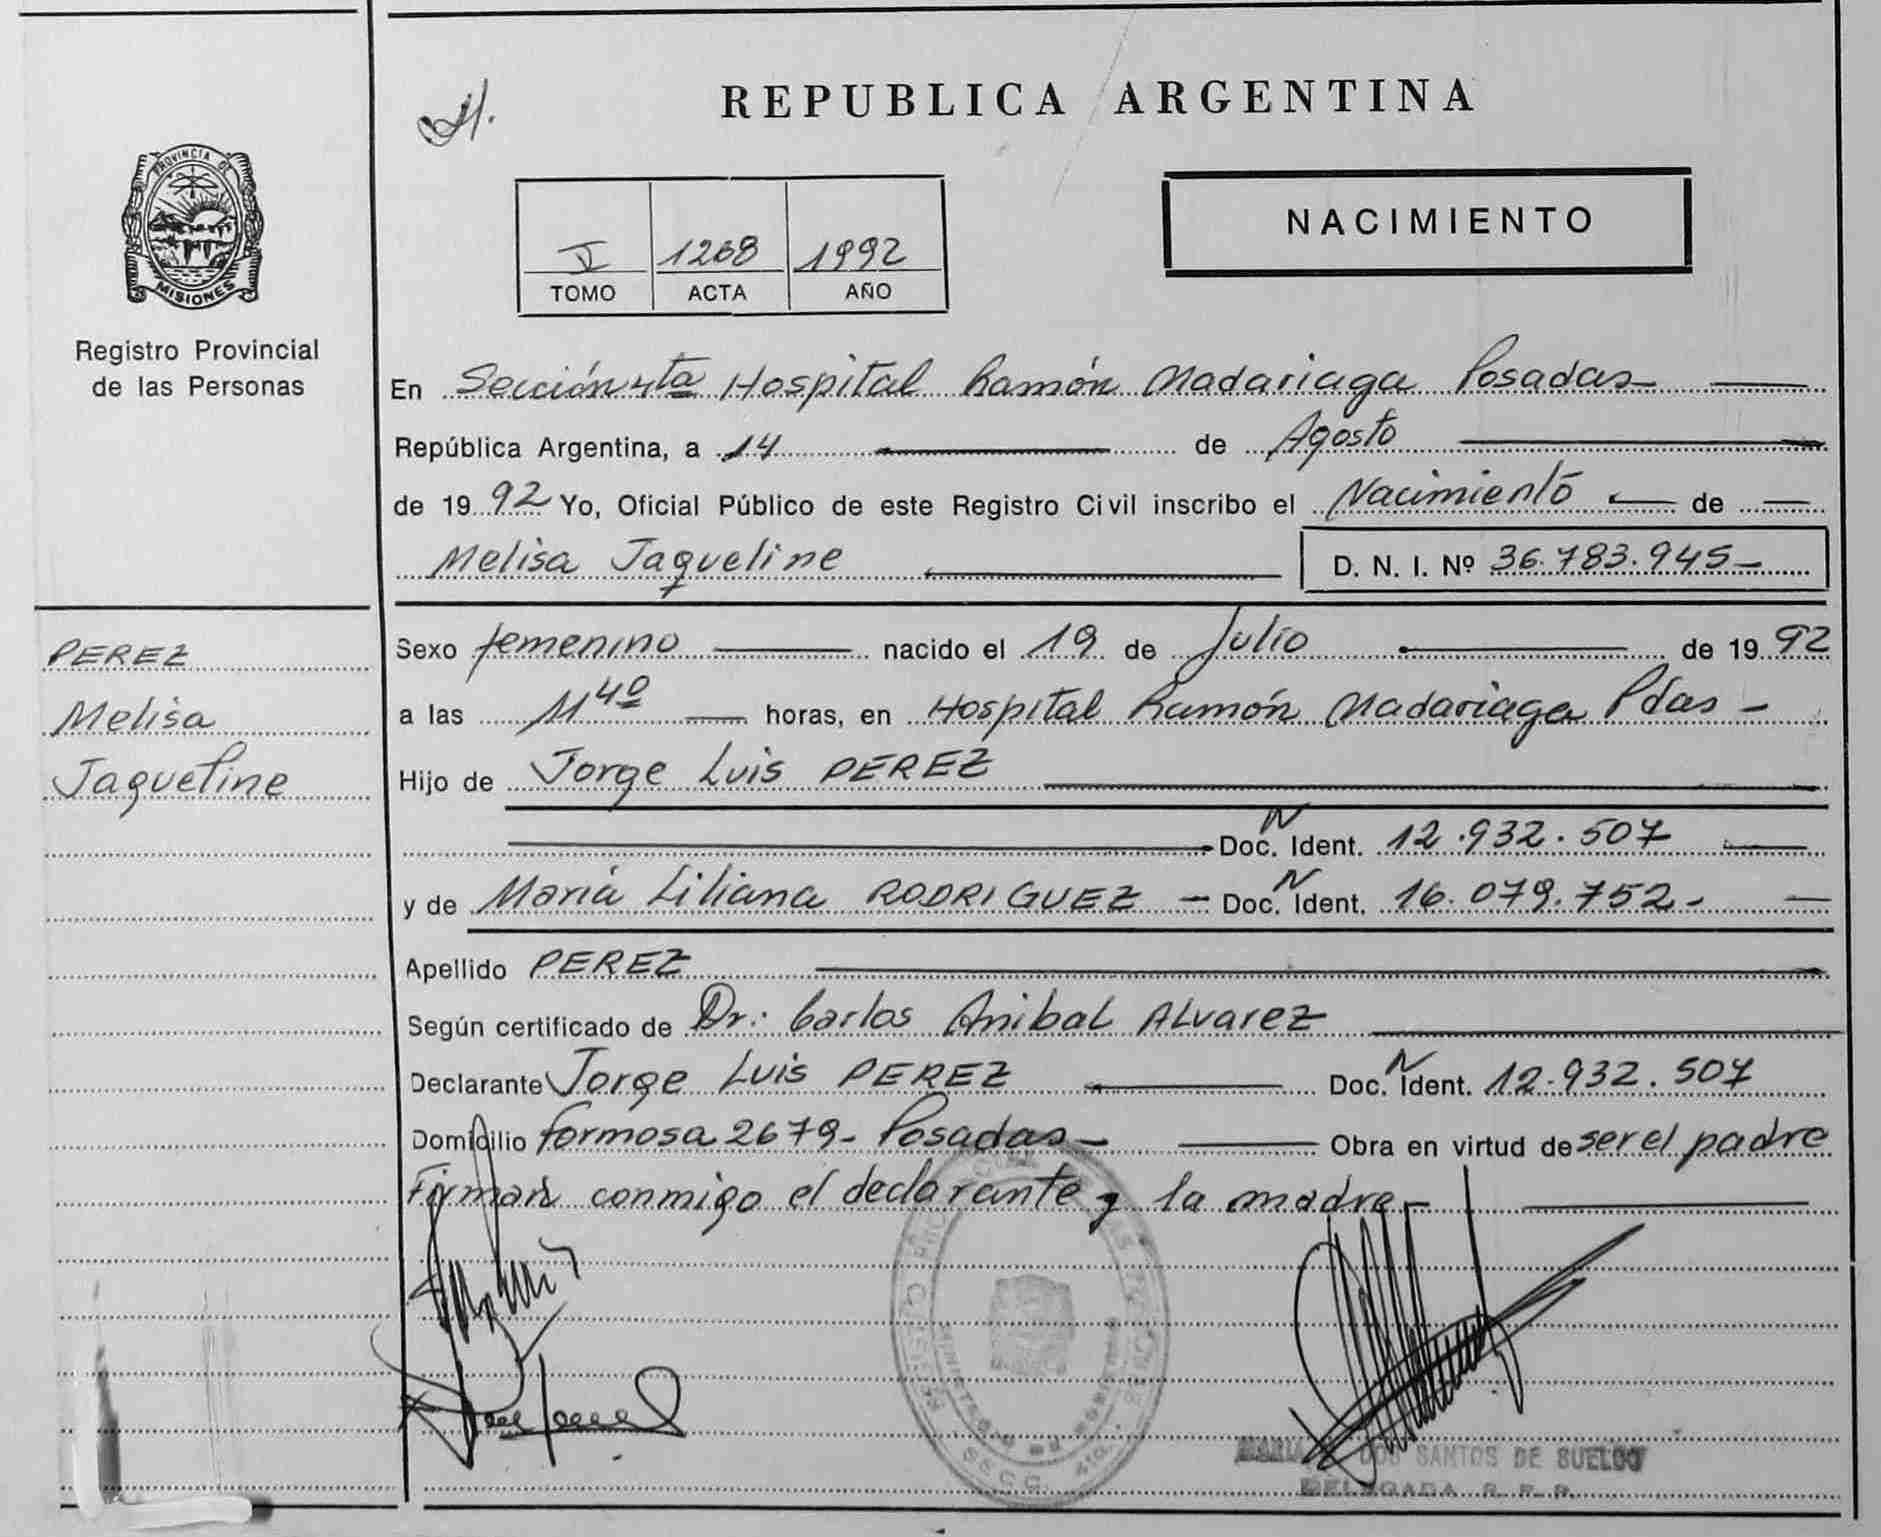 REPUBLICA ARGENTINA
NACIMIENTO
V 1268 1992
TOMO ACTA AÑO
PROVINCIA DE
MISIONES
Registro Provincial
de las Personas
En Sección 4ta Hospital Ramón Madariaga Posadas
República Argentina, a 14 de Agosto
de 1992 Yo, Oficial Público de este Registro Civil inscribo el Nacimiento de
Melisa Jaqueline D. N. I. Nº 36.783.945
PEREZ
Melisa
Jaqueline
Sexo femenino nacido el 19 de Julio de 1992
a las 11 40 horas, en Hospital Ramón Madariaga Pdas
Hijo de Jorge Luis PEREZ
Doc. N Ident. 12.932.507
y de María Liliana RODRIGUEZ Doc. N Ident. 16.079.752
Apellido PEREZ
Según certificado de Dr.: Carlos Anibal ALvarez
Declarante Jorge Luis PEREZ Doc. N Ident. 12.932.507
Domicilio formosa 2679 Posadas Obra en virtud de ser el padre
Firman conmigo el declarante y la madre
SECC. 4ta.
MARIA DOS SANTOS DE SUELDO
DELEGADA R. P. P.